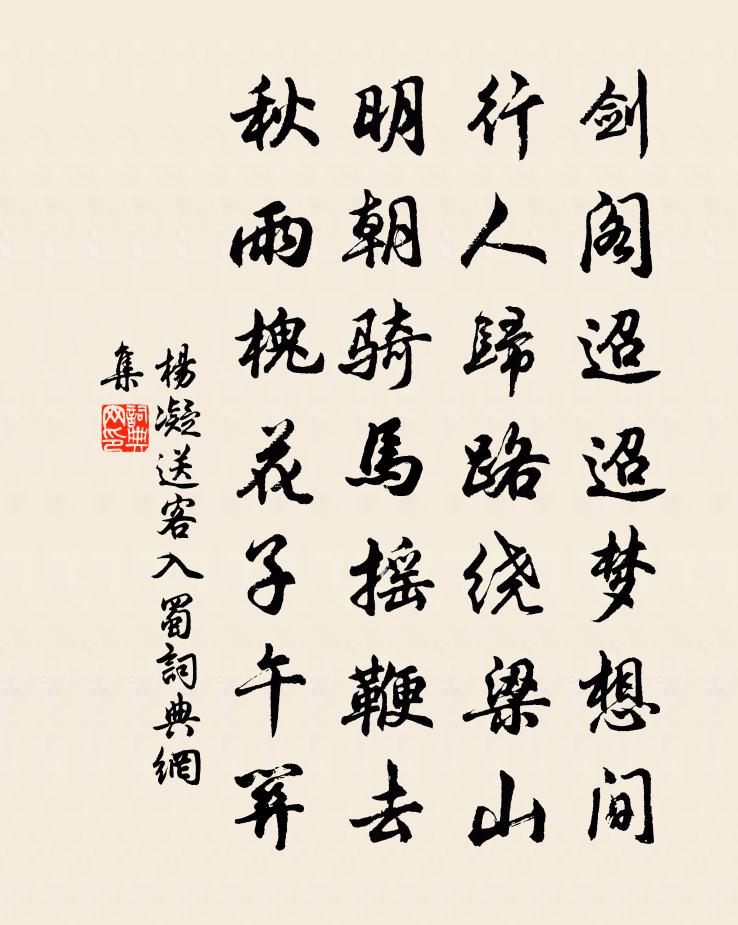 剑阁迢迢梦想间
行人歸路绕梁山
明朝骑馬摇鞭去
秋雨槐花子午关
楊凝送客入蜀詞典網
集
詞典
网印